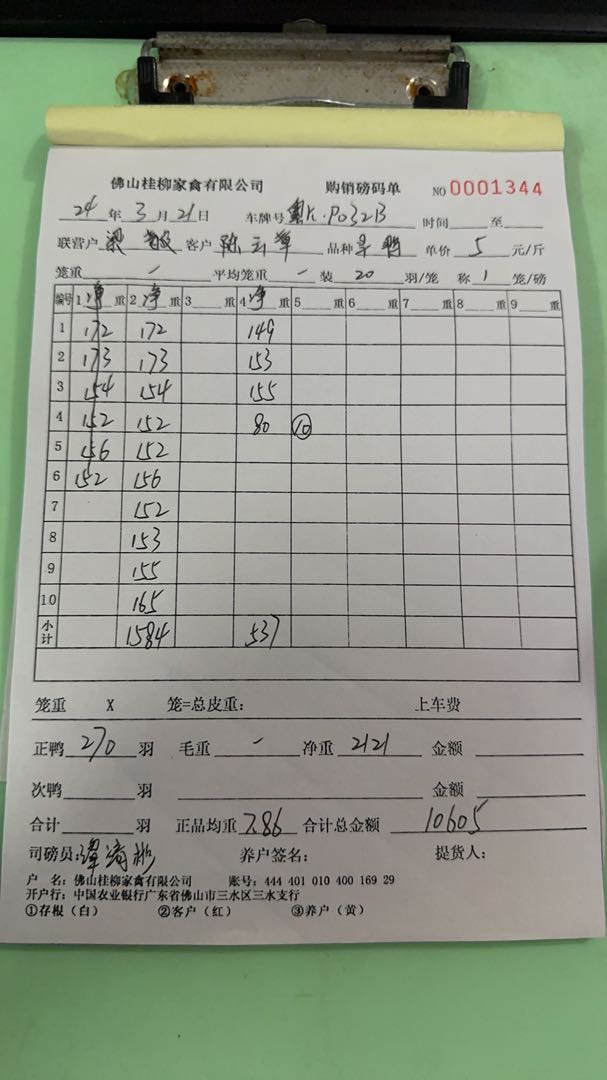 佛山桂柳家禽有限公司 购销磅码单 NO 0001344
24 年 3 月 21 日 车牌号 P0321B 时间 至
联营户 梁 客户 陈 品种 单价 5 元/斤
笼重 - 平均笼重 - 装 20 羽/笼 称 1 笼/磅
编号 1 净 重 2 净 重 3 重 4 净 重 5 重 6 重 7 重 8 重 9 重
1 172 172 149
2 173 173 153
3 154 154 155
4 152 152 80 10
5 156 152
6 152 156
7 152
8 153
9 155
10 165
小计 1584 537
笼重 X 笼=总皮重: 上车费
正鸭 270 羽 毛重 - 净重 2121 金额
次鸭 羽 金额
合计 羽 正品均重 7.86 合计总金额 10605
司磅员: 养户签名: 提货人:
户 名: 佛山桂柳家禽有限公司 账号: 444 401 010 400 169 29
开户行: 中国农业银行广东省佛山市三水区三水支行
①存根(白) ②客户(红) ③养户(黄)